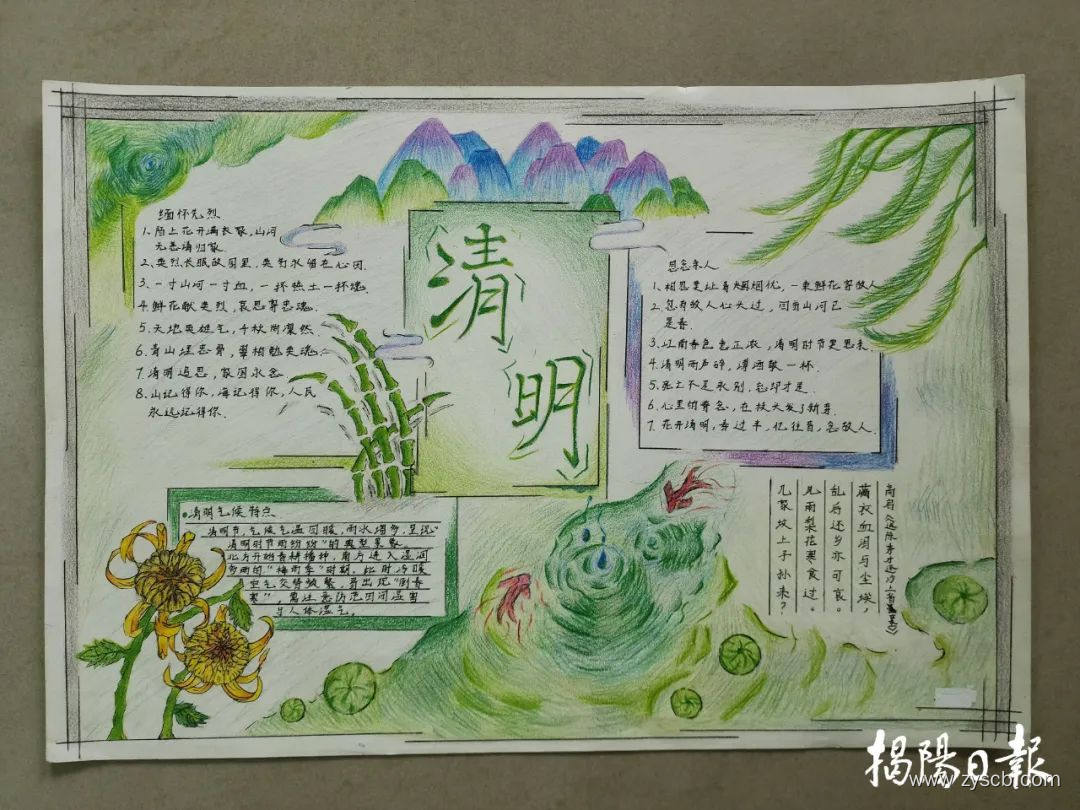 清
明
缅怀先烈
1、陌上花开满衣裳,山河
无恙请归家
2、英烈长眠故园里,英灵永留在心田.
3、一寸山河一寸血,一抔热土一抔魂.
4、鲜花献英烈,哀思寄忠魂.
5、天地英雄气,千秋尚凛然.
6、青山埋忠骨,
7、清明追思,家国永念
8、山记得你,海记得你,人民
永远记得你.
思念亲人
1、一束鲜花寄故人
2、忽有故人心头过,回首山河已
是春.
3、江南春色色正浓,清明时节是思亲.
4、清明雨声碎,薄酒敬一杯.
5、死亡不是永别,忘却才是.
6、心里的眷念,在枝头发了新芽.
7、花开清明,春过半,忆往昔,念故人.
清明气候特点
清明节,气候气温回暖,雨水增多,呈现"
清明时节雨纷纷"的典型景象.
北方开始春耕播种,南方进入湿润
多雨的"梅雨季"时期,此时冷暖
空气交替频繁,易出现"倒春
寒",需注意防范因闷湿
与人体湿气.
满衣血泪与尘埃,
乱后还乡亦可哀。
风雨梨花寒食过。
几家坟上子孙来?
揭陽日報
www.zyscb.com